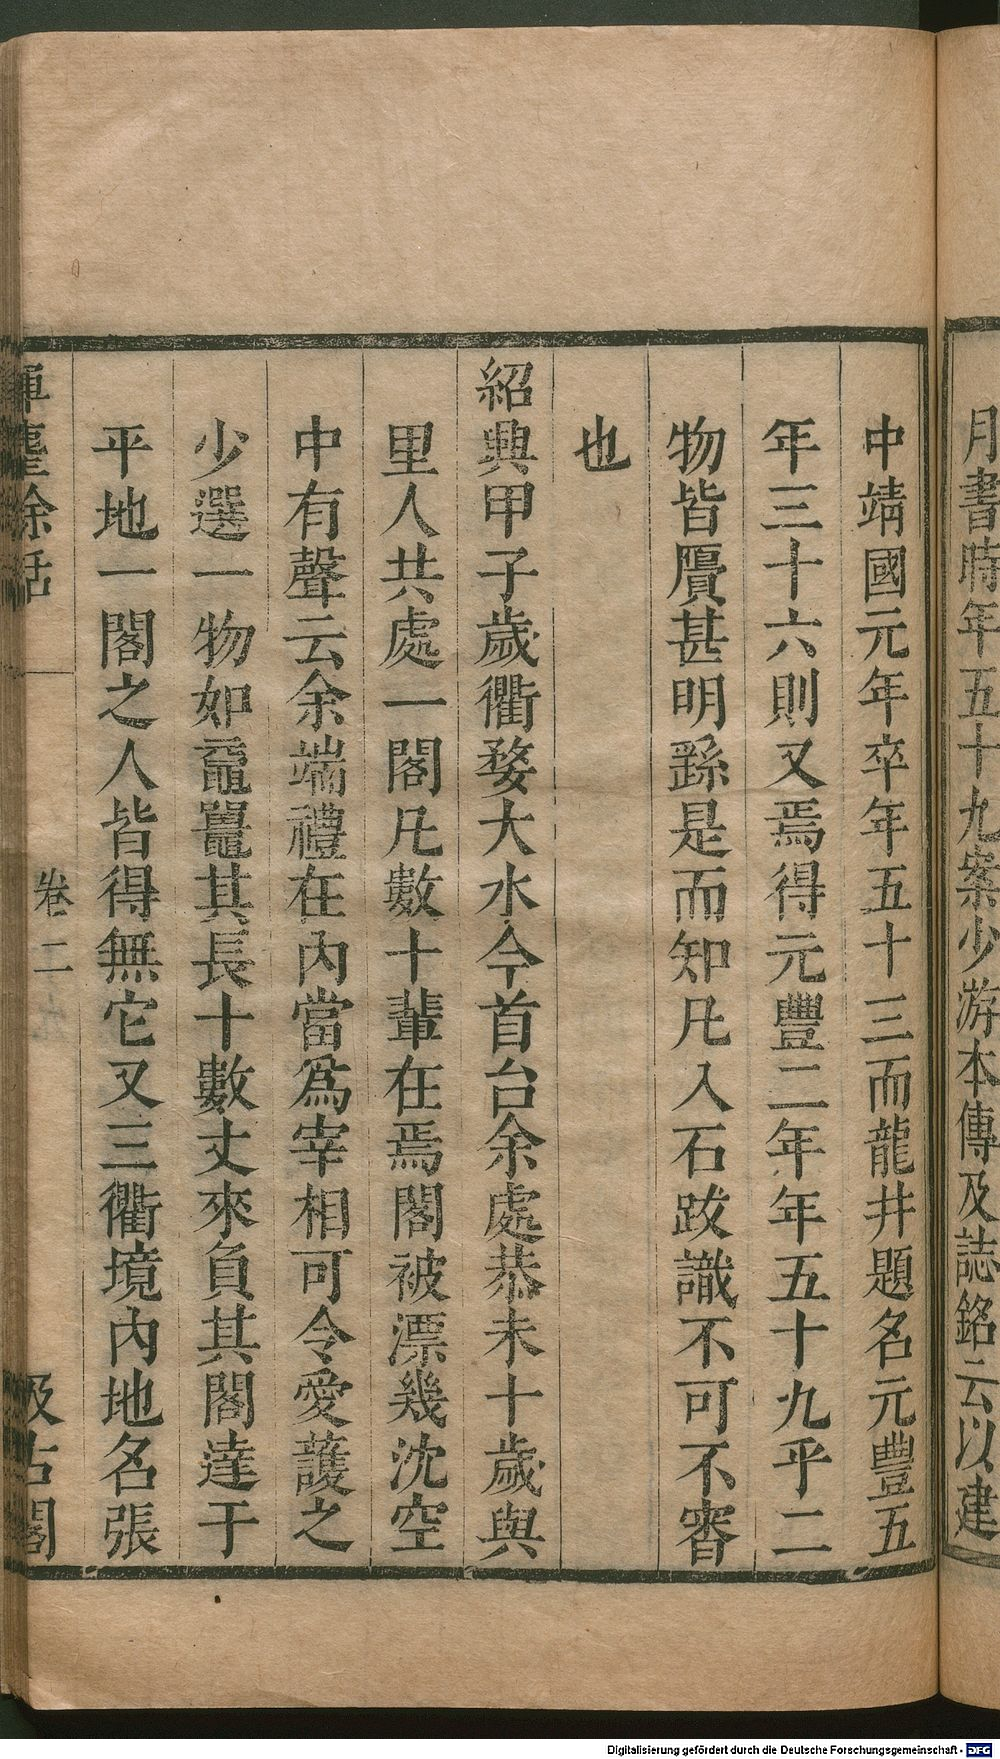 月書時年五十九案少游本傳及誌銘云以建
中靖國元年卒年五十三而龍井題名元豐五
年三十六則又焉得元豐二年年五十九乎二
物皆贗甚明繇是而知凡入石跋識不可不審
也
紹興甲子歲衢婺大水今首台余處恭未十歲與
里人共處一閣凡數十輩在焉閣被漂幾沈空
中有聲云余端禮在內當爲宰相可令愛護之
少選一物如黿鼉其長十數丈來負其閣達于
平地一閣之人皆得無它又三衢境內地名張
揮麈余話 卷二 汲古閣
Digitalisierung gefördert durch die Deutsche Forschungsgemeinschaft - DFG